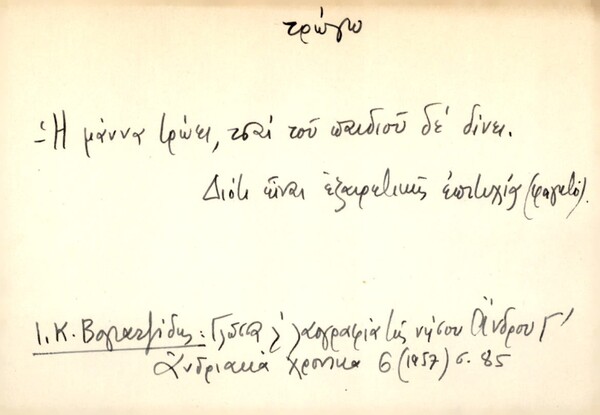 τρώγω
- Ἡ μάννα τρώει, τσαί τοῦ παιδιοῦ δέ δίνει.
Διότι εἶναι ἐξαιρετικῆς ἐπιτυχίας (φαγητό).
Ι. Κ. Βογιατζίδης: Γλῶσσα κ' λαογραφία τῆς νήσου Ἄνδρου Γ'
Ἀνδριακά χρονικά 6 (1957) σ. 85